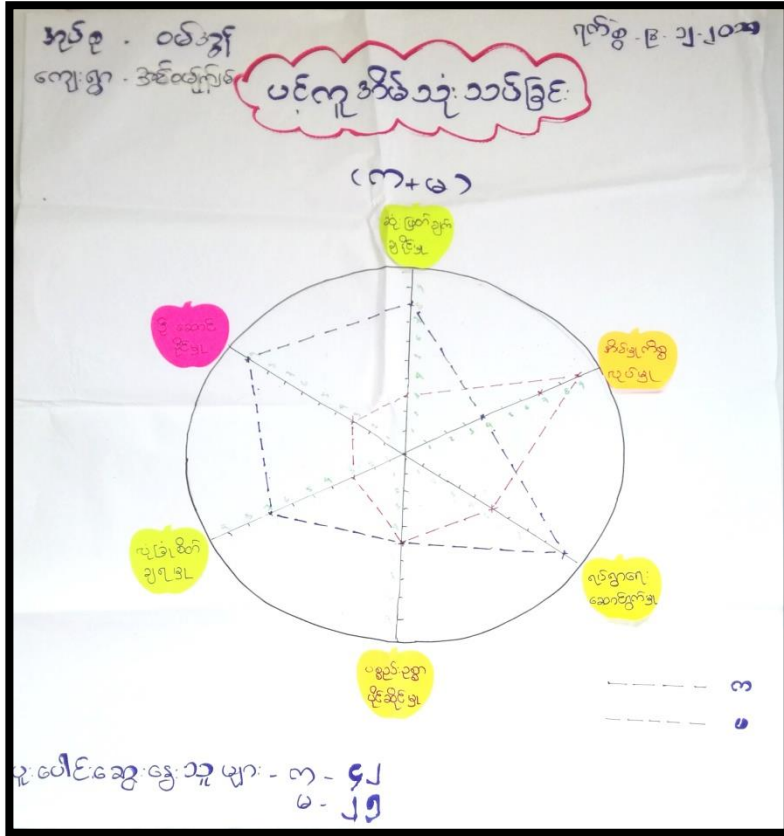 အုပ်စု - ဝမ်အွန်
ကျေးရွာ -
ရက်စွဲ -
ပင့်ကူအိမ်သုံးသပ်ခြင်း
(က+မ)
ဆုံးဖြတ်ချက်
ချနိုင်မှု
အိမ်မှုကိစ္စ
လုပ်မှု
ရပ်ရွာရေး
ဆောင်ရွက်မှု
ပစ္စည်းဥစ္စာ
ပိုင်ဆိုင်မှု
လုံခြုံစိတ်
ချရမှု
ဦးဆောင်
နိုင်မှု
က
မ
ပူးပေါင်းဆွေးနွေးသူများ - က - ၄၂
မ - ၂၅